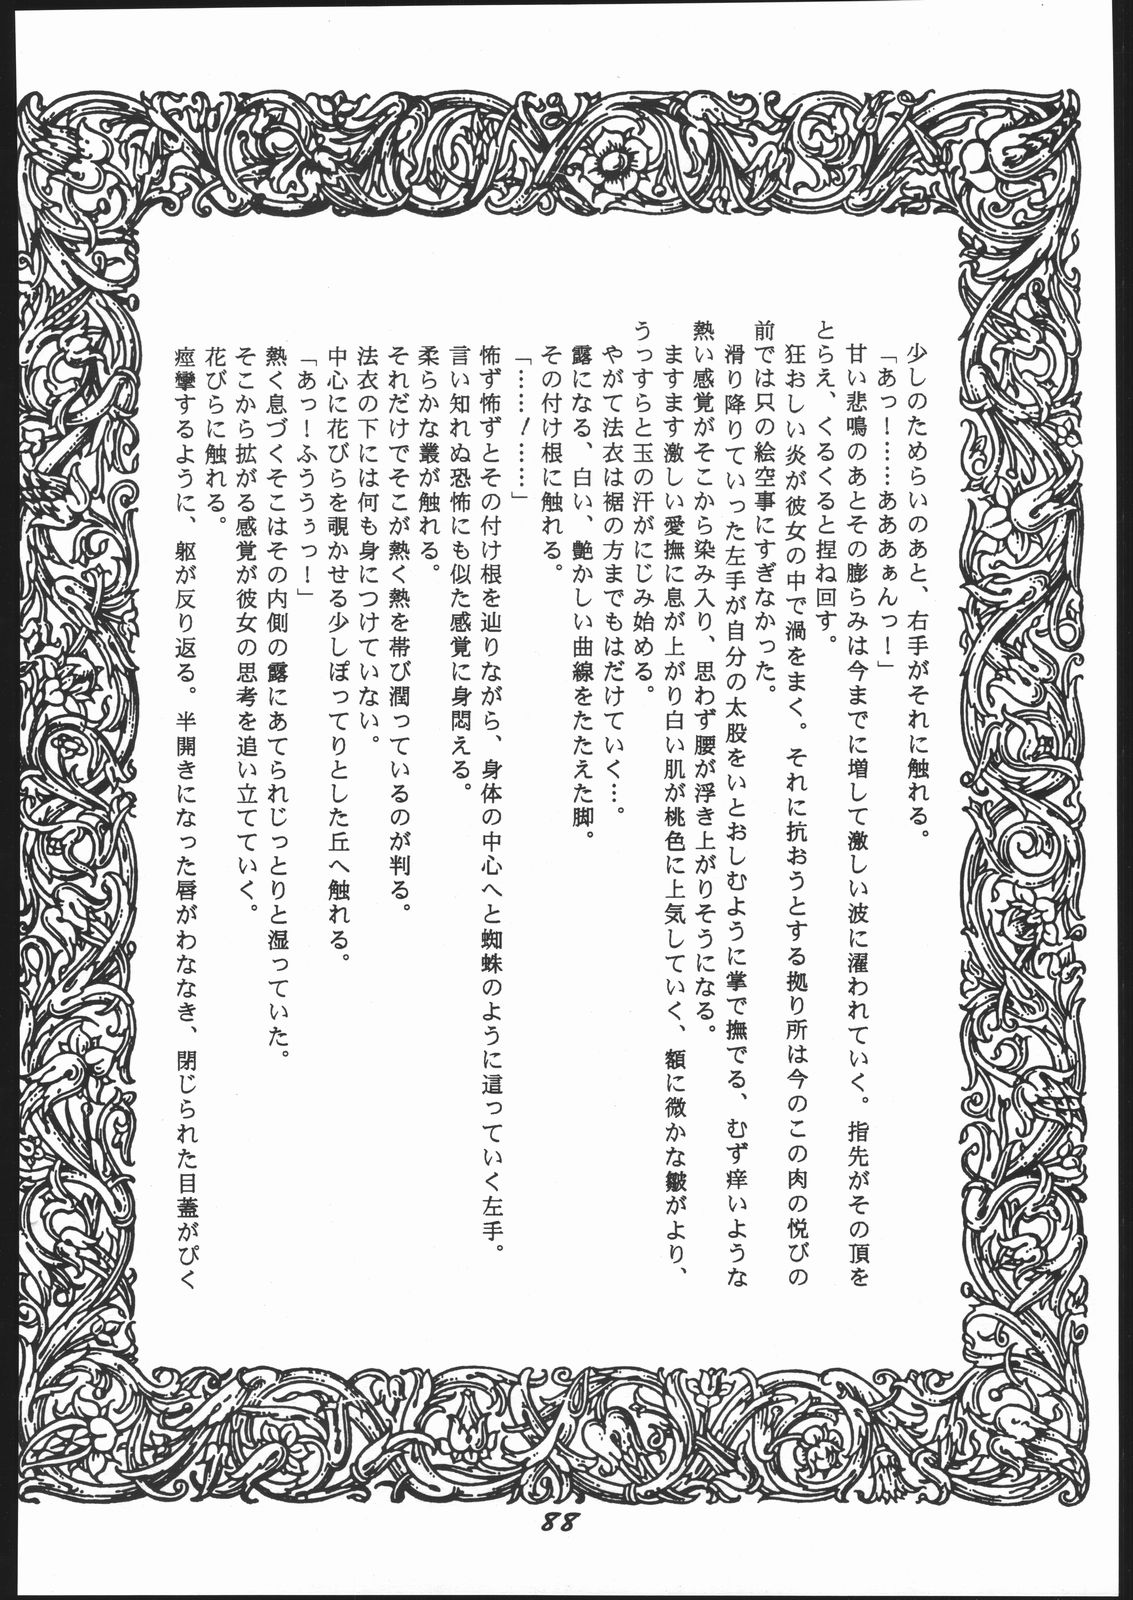 少しのためらいのあと、右手がそれに触れる。
「あっ！……あああぁんっ！」
甘い悲鳴のあとその膨らみは今までに増して激しい波に濯われていく。指先がその頂を
とらえ、くるくると捏ね回す。
狂おしい炎が彼女の中で渦をまく。それに抗おうとする拠り所は今のこの肉の悦びの
前では只の絵空事にすぎなかった。
滑り降りていった左手が自分の太股をいとおしむように掌で撫でる、むず痒いような
熱い感覚がそこから染み入り、思わず腰が浮き上がりそうになる。
ますます激しい愛撫に息が上がり白い肌が桃色に上気していく、額に微かな皺がより、
うっすらと玉の汗がにじみ始める。
やがて法衣は裾の方までもはだけていく…。
露になる、白い、艶かしい曲線をたたえた脚。
その付け根に触れる。
「……！……」
怖ず怖ずとその付け根を辿りながら、身体の中心へと蜘蛛のように這っていく左手。
言い知れぬ恐怖にも似た感覚に身悶える。
柔らかな叢が触れる。
それだけでそこが熱く熱を帯び潤っているのが判る。
法衣の下には何も身につけていない。
中心に花びらを覗かせる少しぽってりとした丘へ触れる。
「あっ！ふううぅっ！」
熱く息づくそこはその内側の露にあてられじっとりと湿っていた。
そこから拡がる感覚が彼女の思考を追い立てていく。
花びらに触れる。
痙攣するように、躯が反り返る。半開きになった唇がわななき、閉じられた目蓋がぴく
88